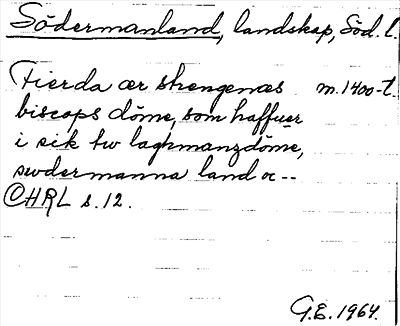 Södermanland, landskap, Söd. l.
Fierda ær strengenæs m. 1400-t.
biscops döme, som haffuer
i sik tw laghmanzdöme,
swdermanna land oc --
©HRL s. 12.
G.E. 1964.